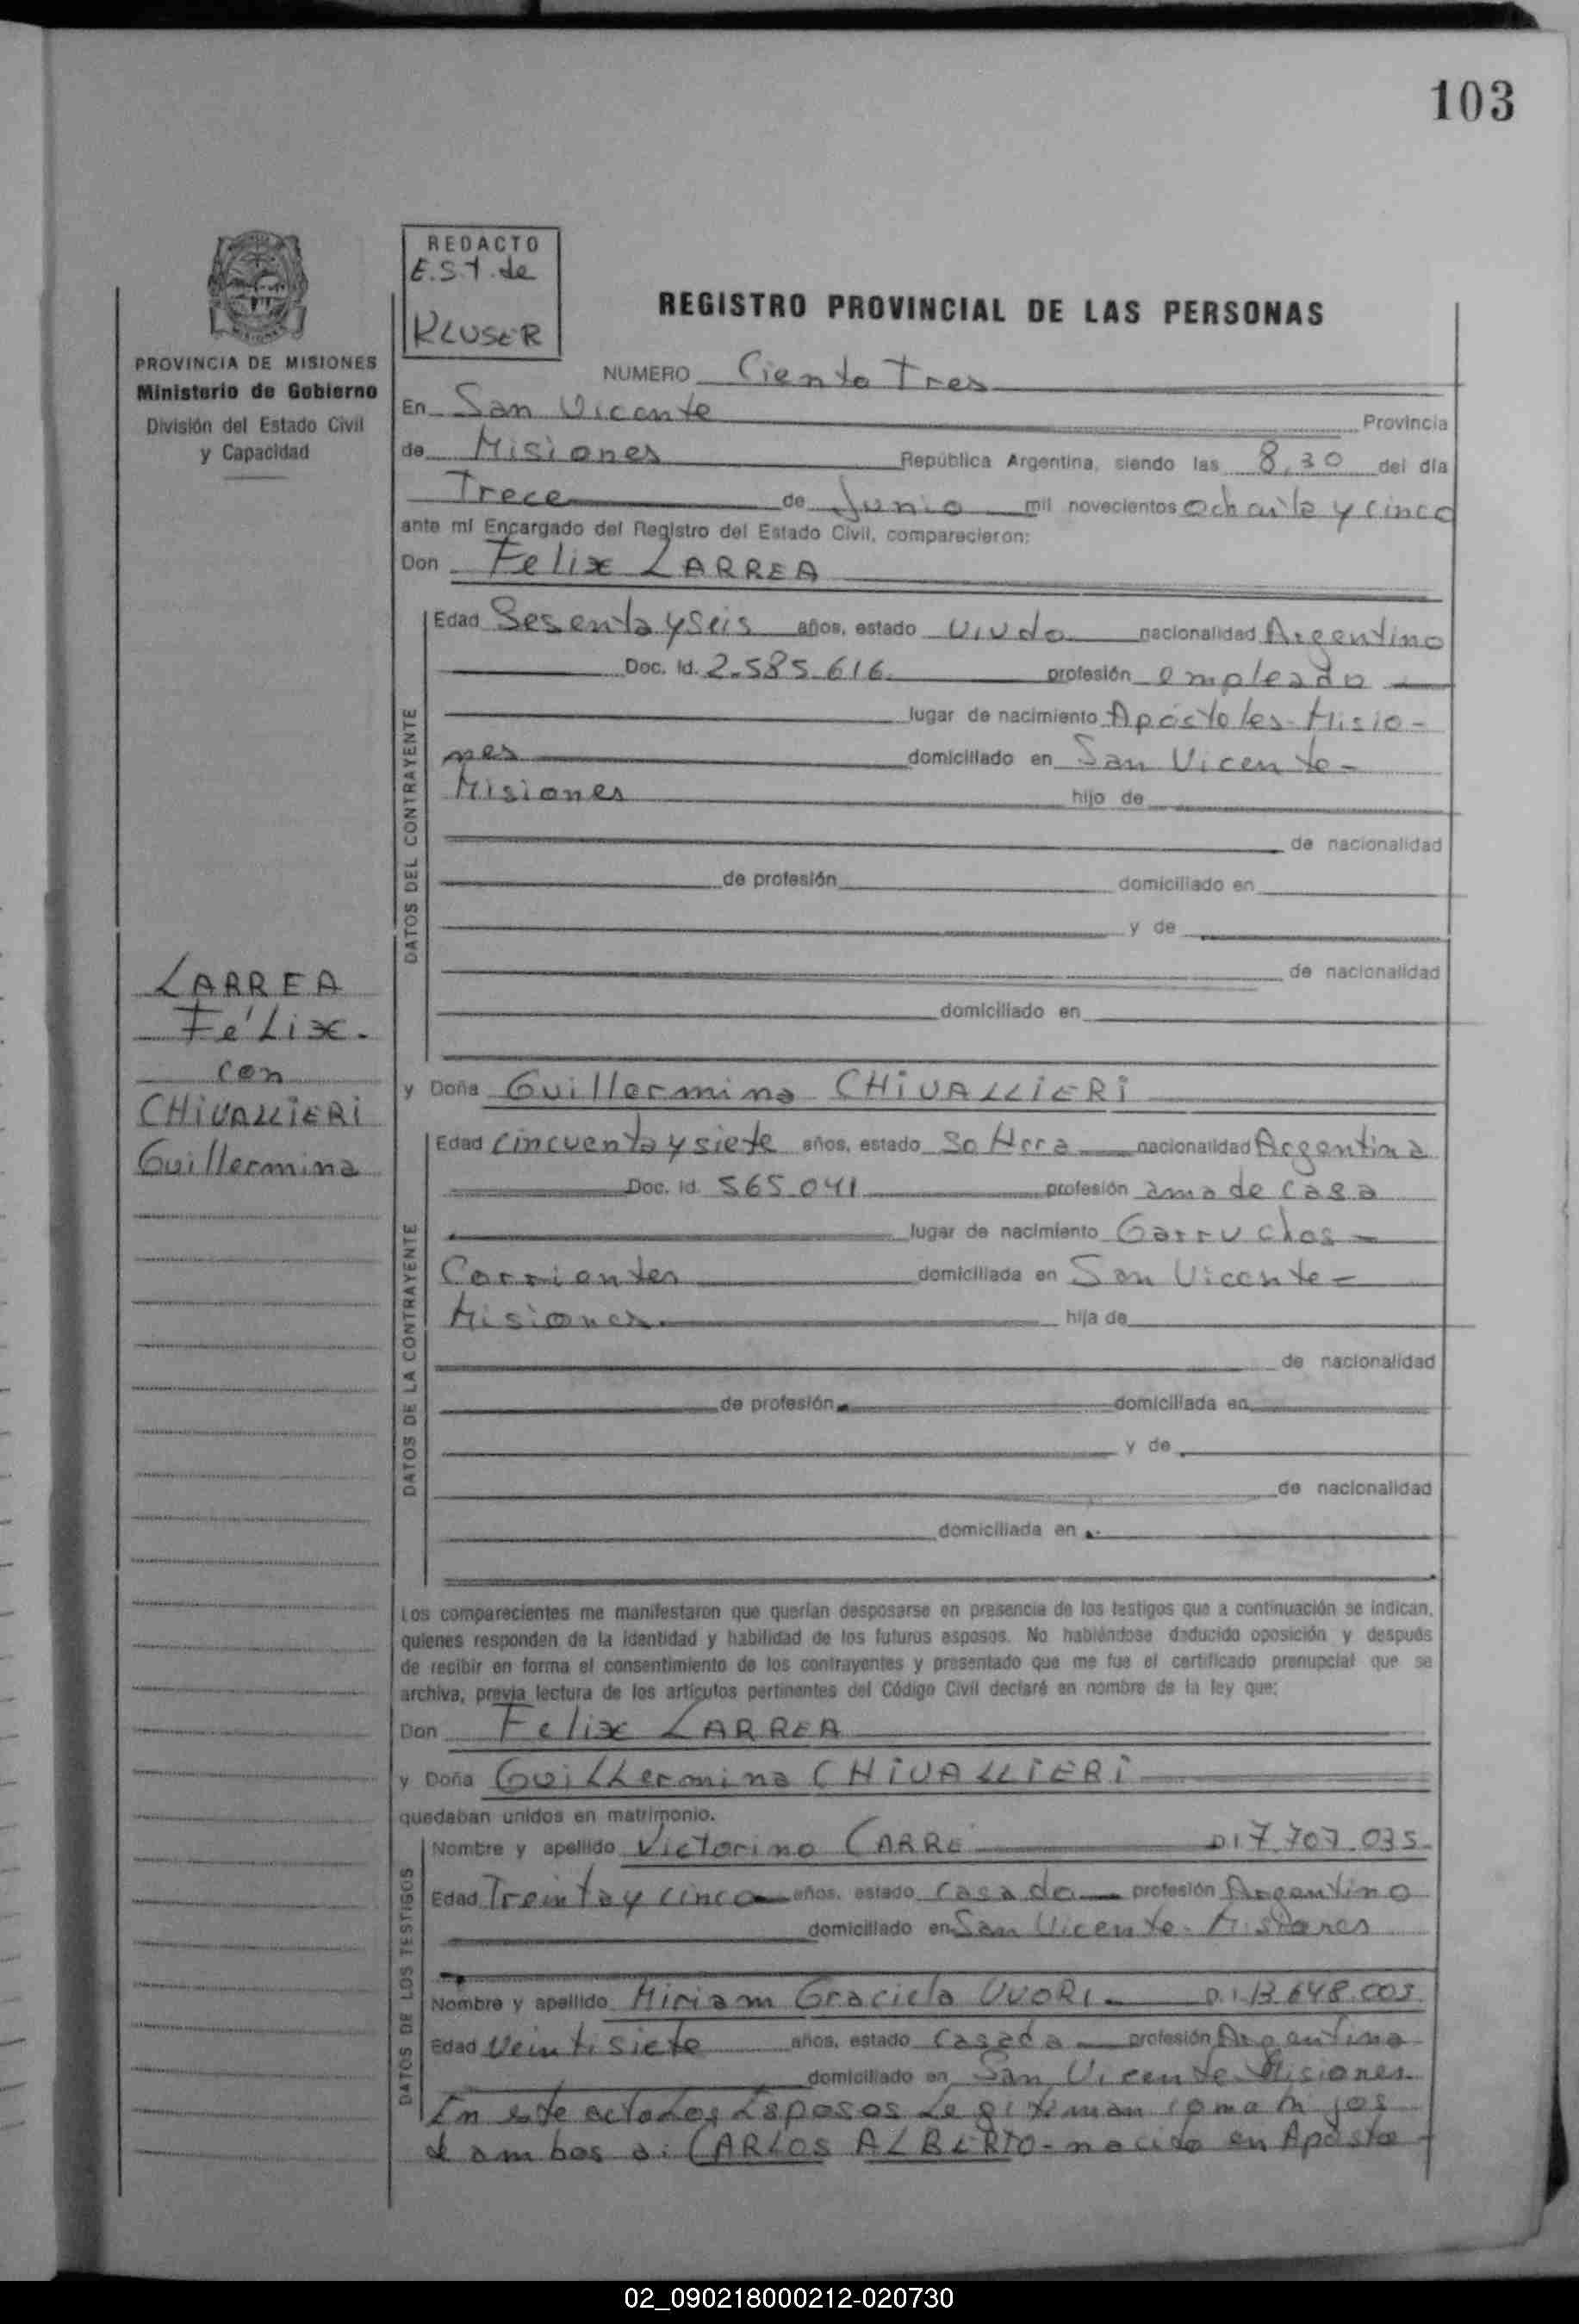 103
REDACTO
E.S.T. de
KLUSER
REGISTRO PROVINCIAL DE LAS PERSONAS
PROVINCIA DE MISIONES
Ministerio de Gobierno
División del Estado Civil
y Capacidad
NUMERO Ciento Tres
En San Vicente Provincia
de Misiones República Argentina, siendo las 8,30 del día
Trece de Junio mil novecientos ochenta y cinco
ante mí Encargado del Registro del Estado Civil, comparecieron:
Don Felix LARREA
DATOS DEL CONTRAYENTE
Edad Sesenta y Seis años, estado Viudo nacionalidad Argentino
Doc. Id. 2.585.616 profesión empleado
lugar de nacimiento Apóstoles-Misio-
nes domiciliado en San Vicente-
Misiones hijo de
de nacionalidad
de profesión domiciliado en
y de
de nacionalidad
domiciliado en
LARREA
Félix.
con
CHiVALLiERi
Guillermina
y Doña Guillermina CHiVALLiERi
DATOS DE LA CONTRAYENTE
Edad cincuenta y siete años, estado Soltera nacionalidad Argentina
Doc. Id. 565.041 profesión ama de casa
lugar de nacimiento Garruchos-
Corrientes domiciliada en San Vicente-
Misiones hija de
de nacionalidad
de profesión domiciliada en
y de
de nacionalidad
domiciliada en
Los comparecientes me manifestaron que querían desposarse en presencia de los testigos que a continuación se indican,
quienes responden de la identidad y habilidad de los futuros esposos. No habiéndose deducido oposición y después
de recibir en forma el consentimiento de los contrayentes y presentado que me fue el certificado prenupcial que se
archiva, previa lectura de los artículos pertinentes del Código Civil declaré en nombre de la ley que:
Don Felix LARREA
y Doña Guillermina CHiVALLiERi
quedaban unidos en matrimonio.
DATOS DE LOS TESTIGOS
Nombre y apellido Victorino CARRE D.I 7.707.035
Edad Treinta y cinco años, estado casado profesión Argentino
domiciliado en San Vicente-Misiones
Nombre y apellido Miriam Graciela D.I. 13.648.003
Edad Veintisiete años, estado casada profesión Argentina
domiciliado en San Vicente Misiones
En este acto Los Esposos Legitiman como hijos
de ambos a: CARLOS ALBERTO-nacido en Apósto-
02_090218000212-020730